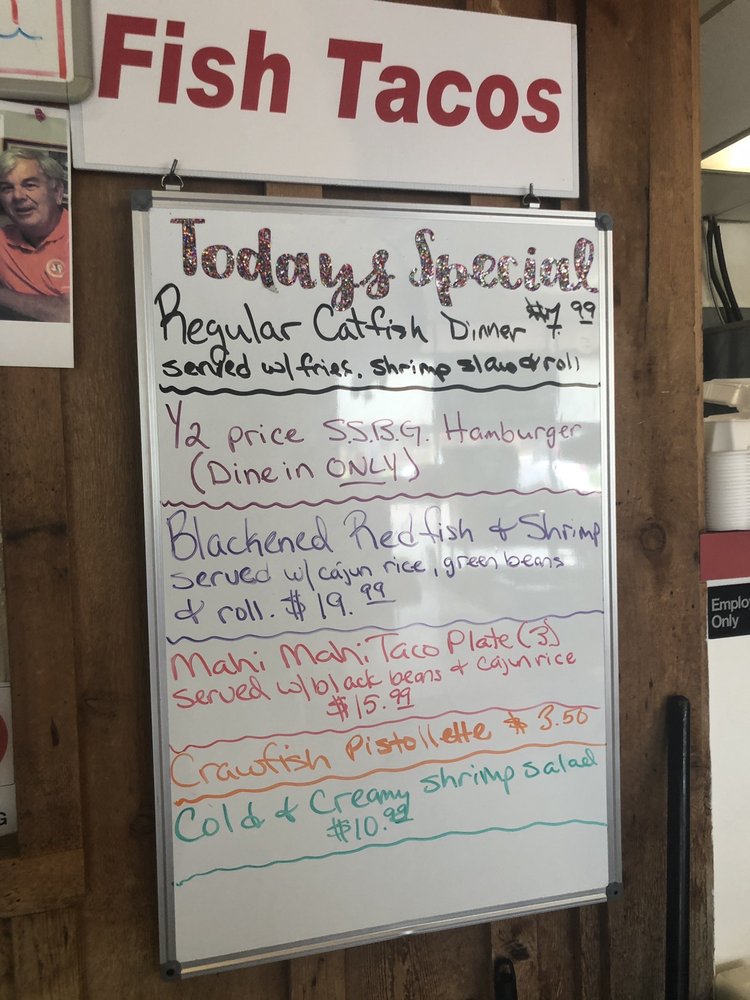 Fish Tacos
Todays Special
Regular Catfish Dinner $7.99
served w/fries, shrimp slaw & roll
1/2 price S.S.B.G. Hamburger
(Dine in ONLY)
Blackened Redfish & Shrimp
served w/cajun rice, green beans
& roll. $19.99
Mahi Mahi Taco Plate (3)
served w/black beans & cajun rice
$15.99
Crawfish Pistollette $3.50
Cold & Creamy shrimp salad
$10.99
Emplo
Only
G